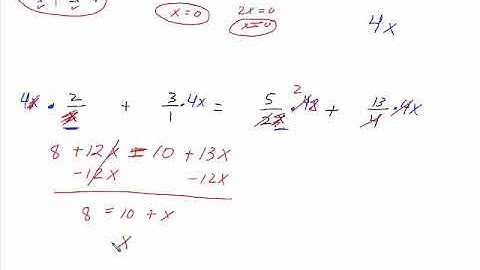 x=0 2x=0
x=0
4x
4x · 2/x + 3/1 · 4x = 5/2x · 4x 2 + 13/4 · 4x
8 + 12x = 10 + 13x
-12x -12x
8 = 10 + x
x